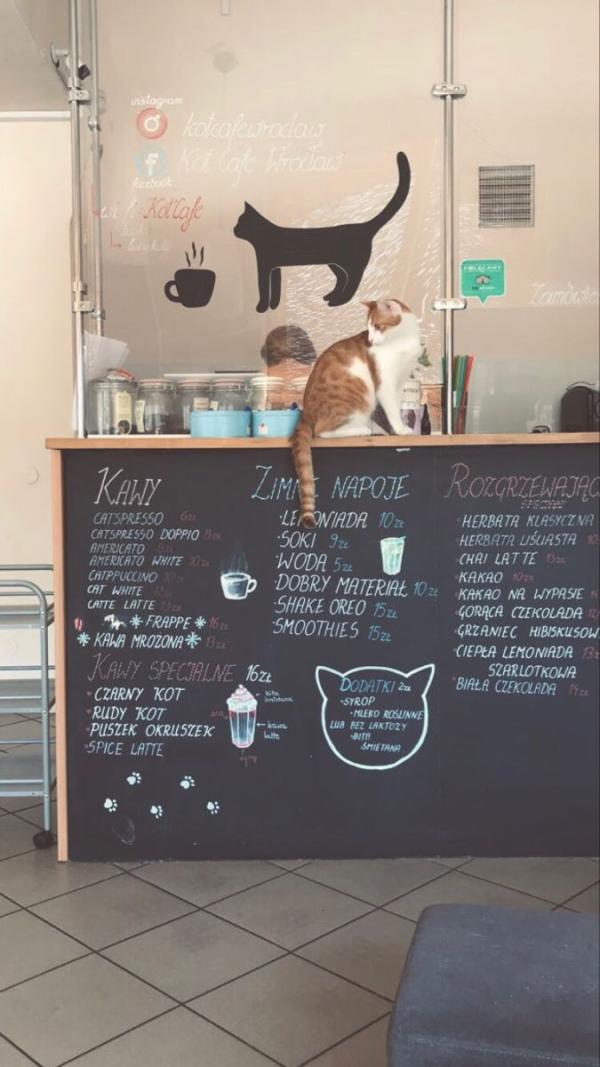 instagram
kotcafewroclaw
Kot Cafe Wrocław
facebook
KotCafe
POLECANY
Zamówie
KAWY
CATSPRESSO 6zł
CATSPRESSO DOPPIO 8zł
AMERICATO 8zł
AMERICATO WHITE 10zł
CATPPUCCINO
CAT WHITE
CATTE LATTE
FRAPPE 16zł
KAWA MROŻONA 13zł
KAWY SPECJALNE 16zł
CZARNY KOT
RUDY KOT
PUSZEK OKRUSZEK
SPICE LATTE
bita śmietana
kawa latte
syrop
ZIMNE NAPOJE
LEMONIADA 10zł
SOKI 9zł
WODA 5zł
DOBRY MATERIAŁ 10zł
SHAKE OREO 15zł
SMOOTHIES 15zł
DODATKI 2zł
SYROP
MLEKO ROŚLINNE
LUB BEZ LAKTOZY
BITA
ŚMIETANA
ROZGRZEWAJĄC
HERBATA KLASYCZNA
HERBATA LIŚCIASTA
CHAI LATTE 13zł
KAKAO 10zł
KAKAO NA WYPASIE
GORĄCA CZEKOLADA
GRZANIEC HIBISKUSOW
CIEPŁA LEMONIADA 13z
SZARLOTKOWA
BIAŁA CZEKOLADA 14zł